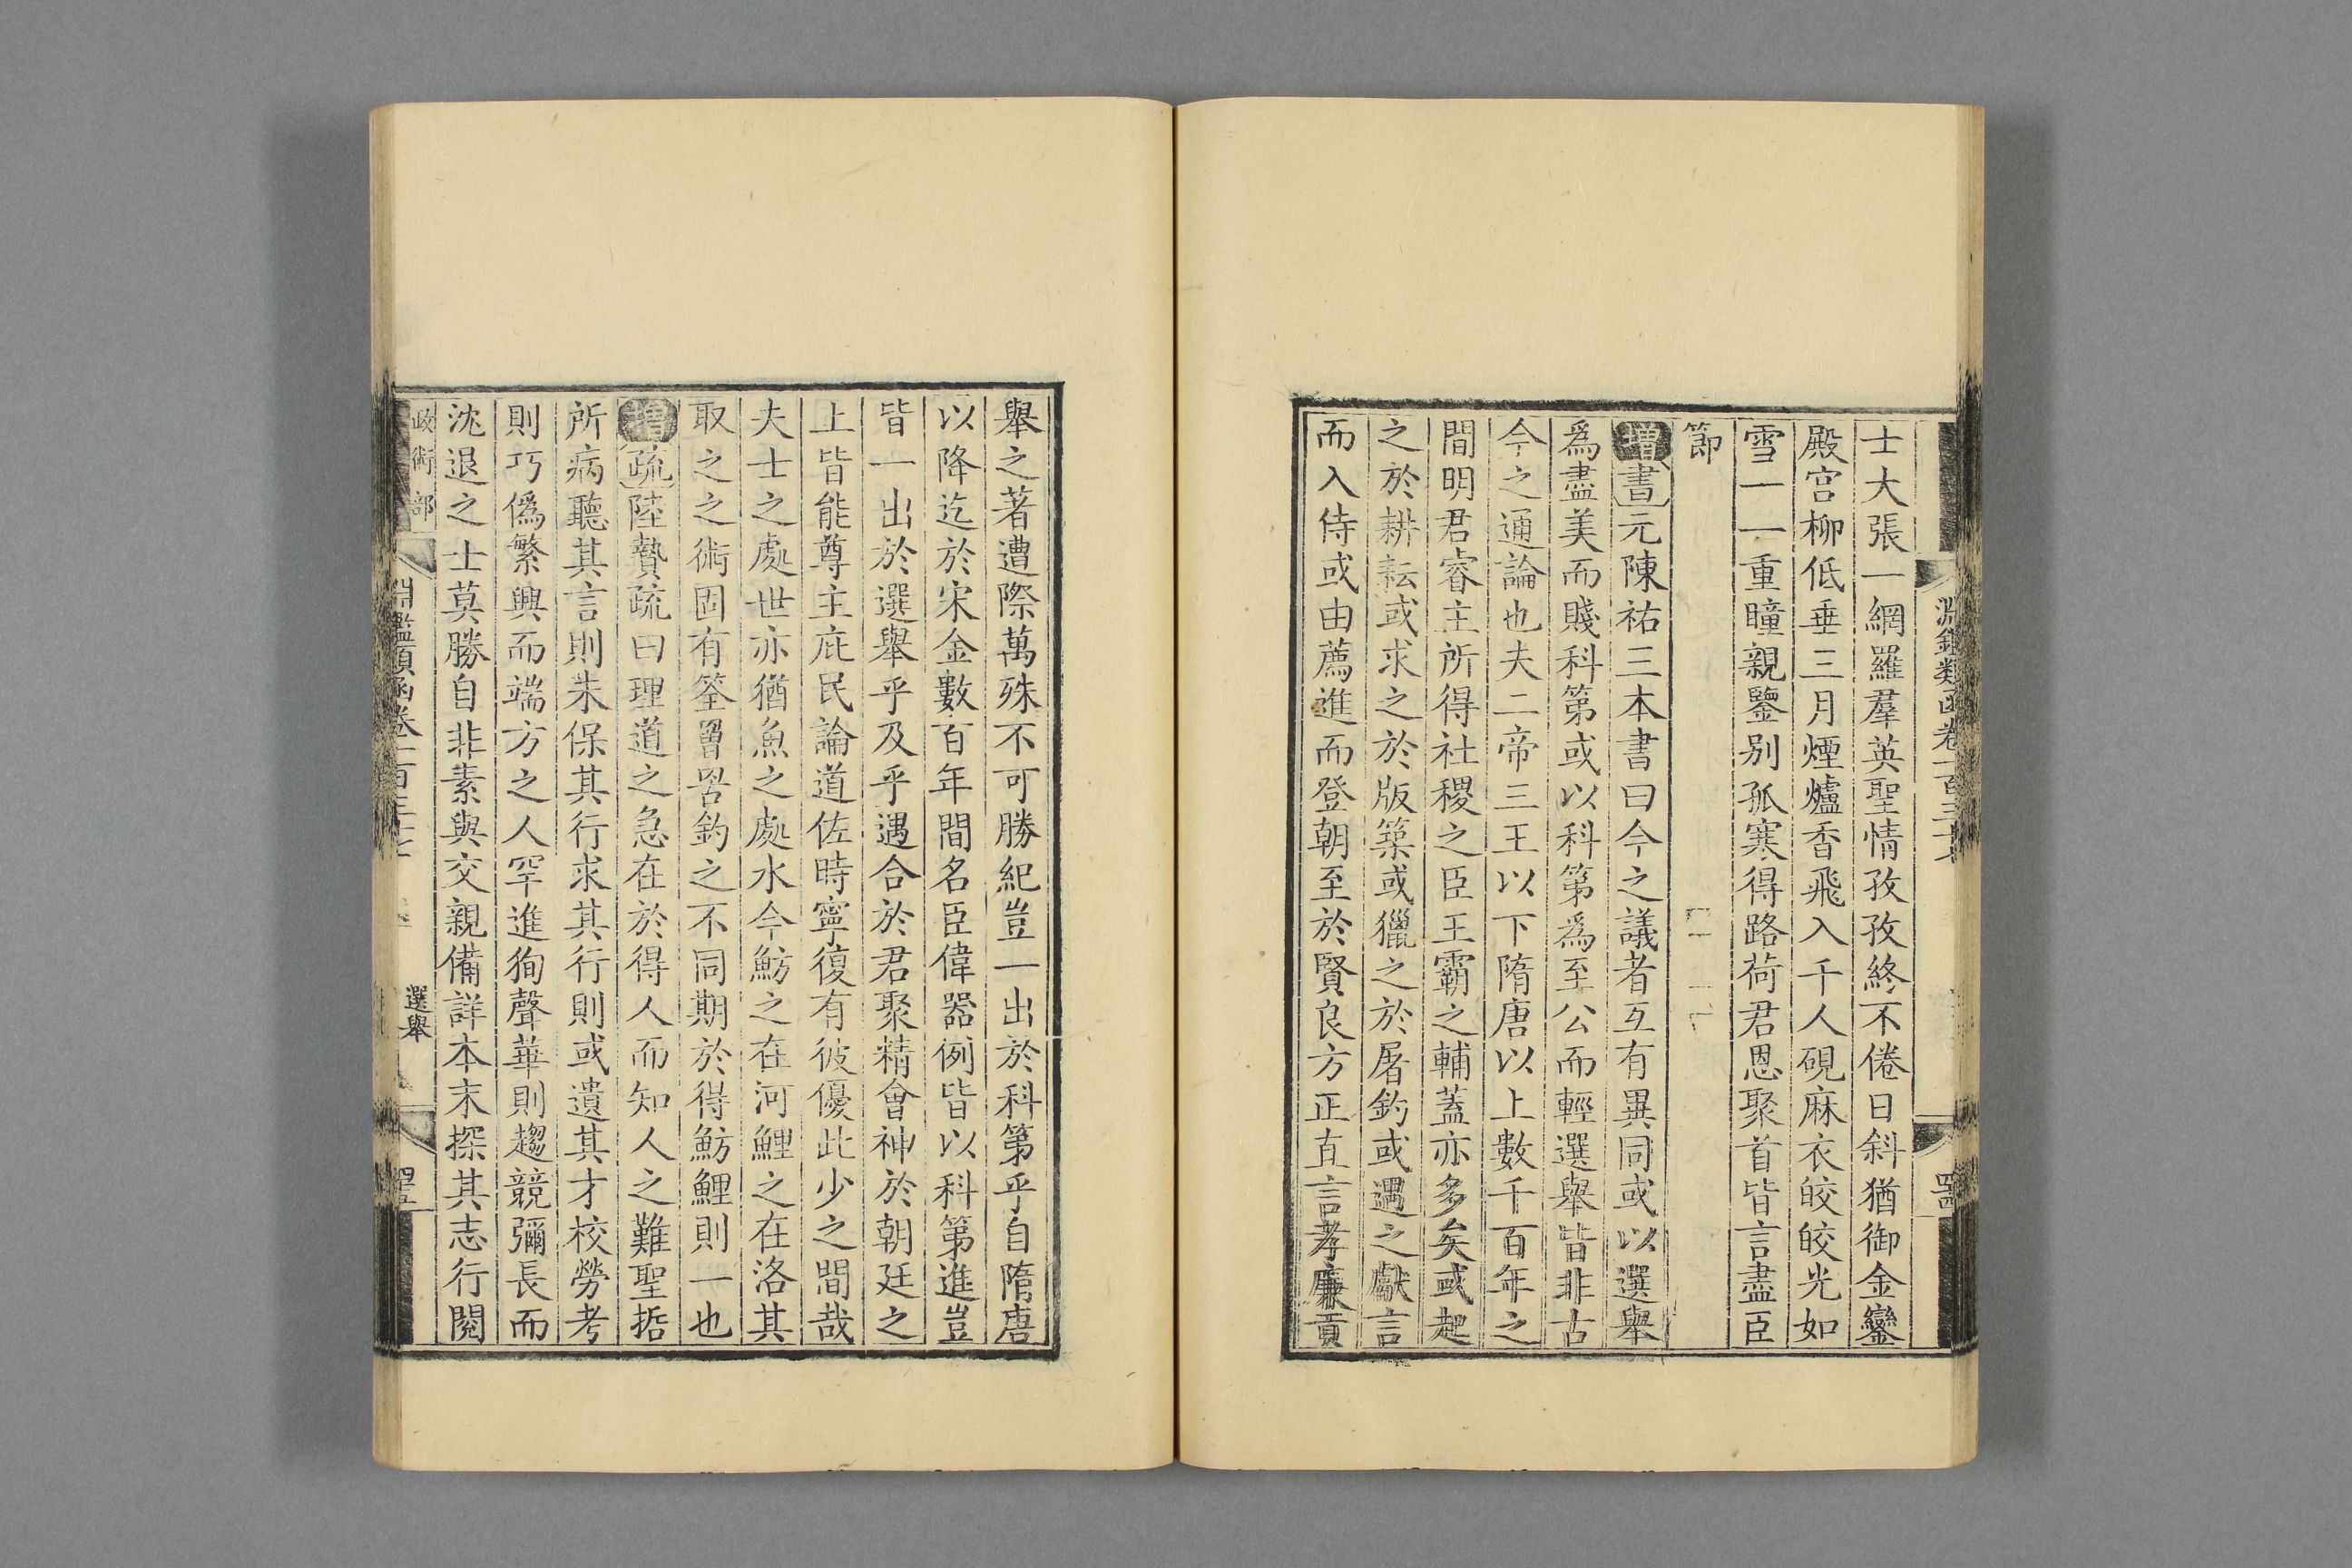 士大張一網羅羣英聖情孜孜終不倦日斜猶御金鑾
殿宮柳低垂三月煙爐香飛入千人硯麻衣皎皎光如
雪一一重瞳親鑒别孤寒得路荷君恩聚首皆言盡臣
節
增書元陳祐三本書曰今之議者互有異同或以選舉
爲盡美而賤科第或以科第爲至公而輕選舉皆非古
今之通論也夫二帝三王以下隋唐以上數千百年之
間明君睿主所得社稷之臣王霸之輔蓋亦多矣或起
之於耕耘或求之於版築或獵之於屠釣或遇之獻言
而入侍或由薦進而登朝至於賢良方正直言孝廉貢
舉之著遭際萬殊不可勝紀豈一出於科第乎自隋唐
以降迄於宋金數百年間名臣偉器例皆以科第進豈
皆一出於選舉乎及乎遇合於君聚精會神於朝廷之
上皆能尊主庇民論道佐時寧復有彼優此少之間哉
夫士之處世亦猶魚之處水今魴之在河鯉之在洛其
取之之術固有筌罾罟釣之不同期於得魴鯉則一也
增疏陸贄疏曰理道之急在於得人而知人之難聖哲
所病聽其言則未保其行求其行則或遺其才校勞考
則巧僞繁興而端方之人罕進徇聲華則趨競彌長而
沈退之士莫勝自非素與交親備詳本末探其志行閱
政術部
淵鑑類函卷一百三十七
選舉